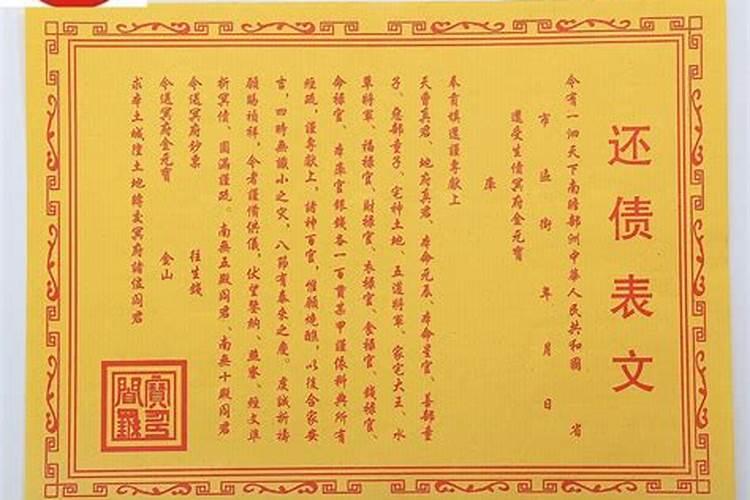 还债表文
今有一泗天下南瞻部洲中華人民共和國 省
市 區 街 年 月 日
還受生債冥府金元寶
庫
奉肯填還謹專献上
天曹真君、地府真君、本命元辰、本命星官、善部童
子、惡部童子、宅神土地、五道將軍、家宅大王、水
草將軍、福祿官、財祿官、衣祿官、食祿官、錢祿官、
命祿官、本庫官銀錢各一百貫某甲謹依科典所有
經疏，謹專献上，諸神百官，惟願燒醮，以後合家安
吉，四時無識小之灾，八節有泰來之慶。虔誠祈禱
願賜禎祥，今者謹備供儀，伏望鑒納、燕寥、經文準
折冥債、圓滿謹疏。南無五殿阎君、南無十殿阎君
令送冥府鈔票 往生錢
令送冥府金元寶 金山
求本土城隍土地轉交冥府諸位阎君